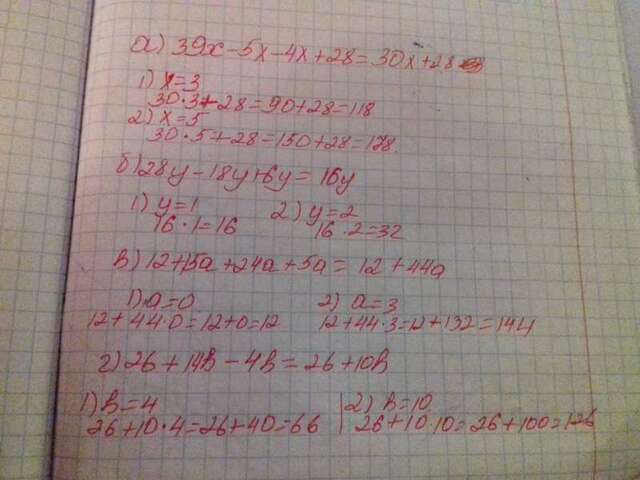 а) 39x - 5x - 4x + 28 = 30x + 28
1) x = 3
30·3 + 28 = 90 + 28 = 118
2) x = 5
30·5 + 28 = 150 + 28 = 178.
б) 28y - 18y + 6y = 16y
1) y = 1 2) y = 2
16·1 = 16 16·2 = 32
в) 12 + 15a + 24a + 5a = 12 + 44a
1) a = 0 2) a = 3
12 + 44·0 = 12 + 0 = 12 12 + 44·3 = 12 + 132 = 144
г) 26 + 14b - 4b = 26 + 10b
1) b = 4 2) b = 10
26 + 10·4 = 26 + 40 = 66 26 + 10·10 = 26 + 100 = 126